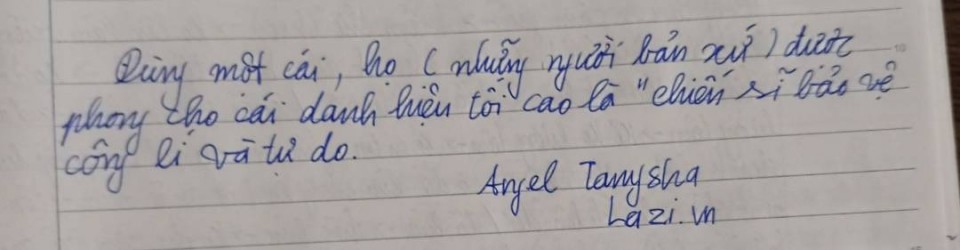 Đùng một cái, họ (những người bản xứ) được
phong cho cái danh hiệu tối cao là "chiến sĩ bảo vệ
công lí và tự do.
Angel Tanysha
Lazi.vn